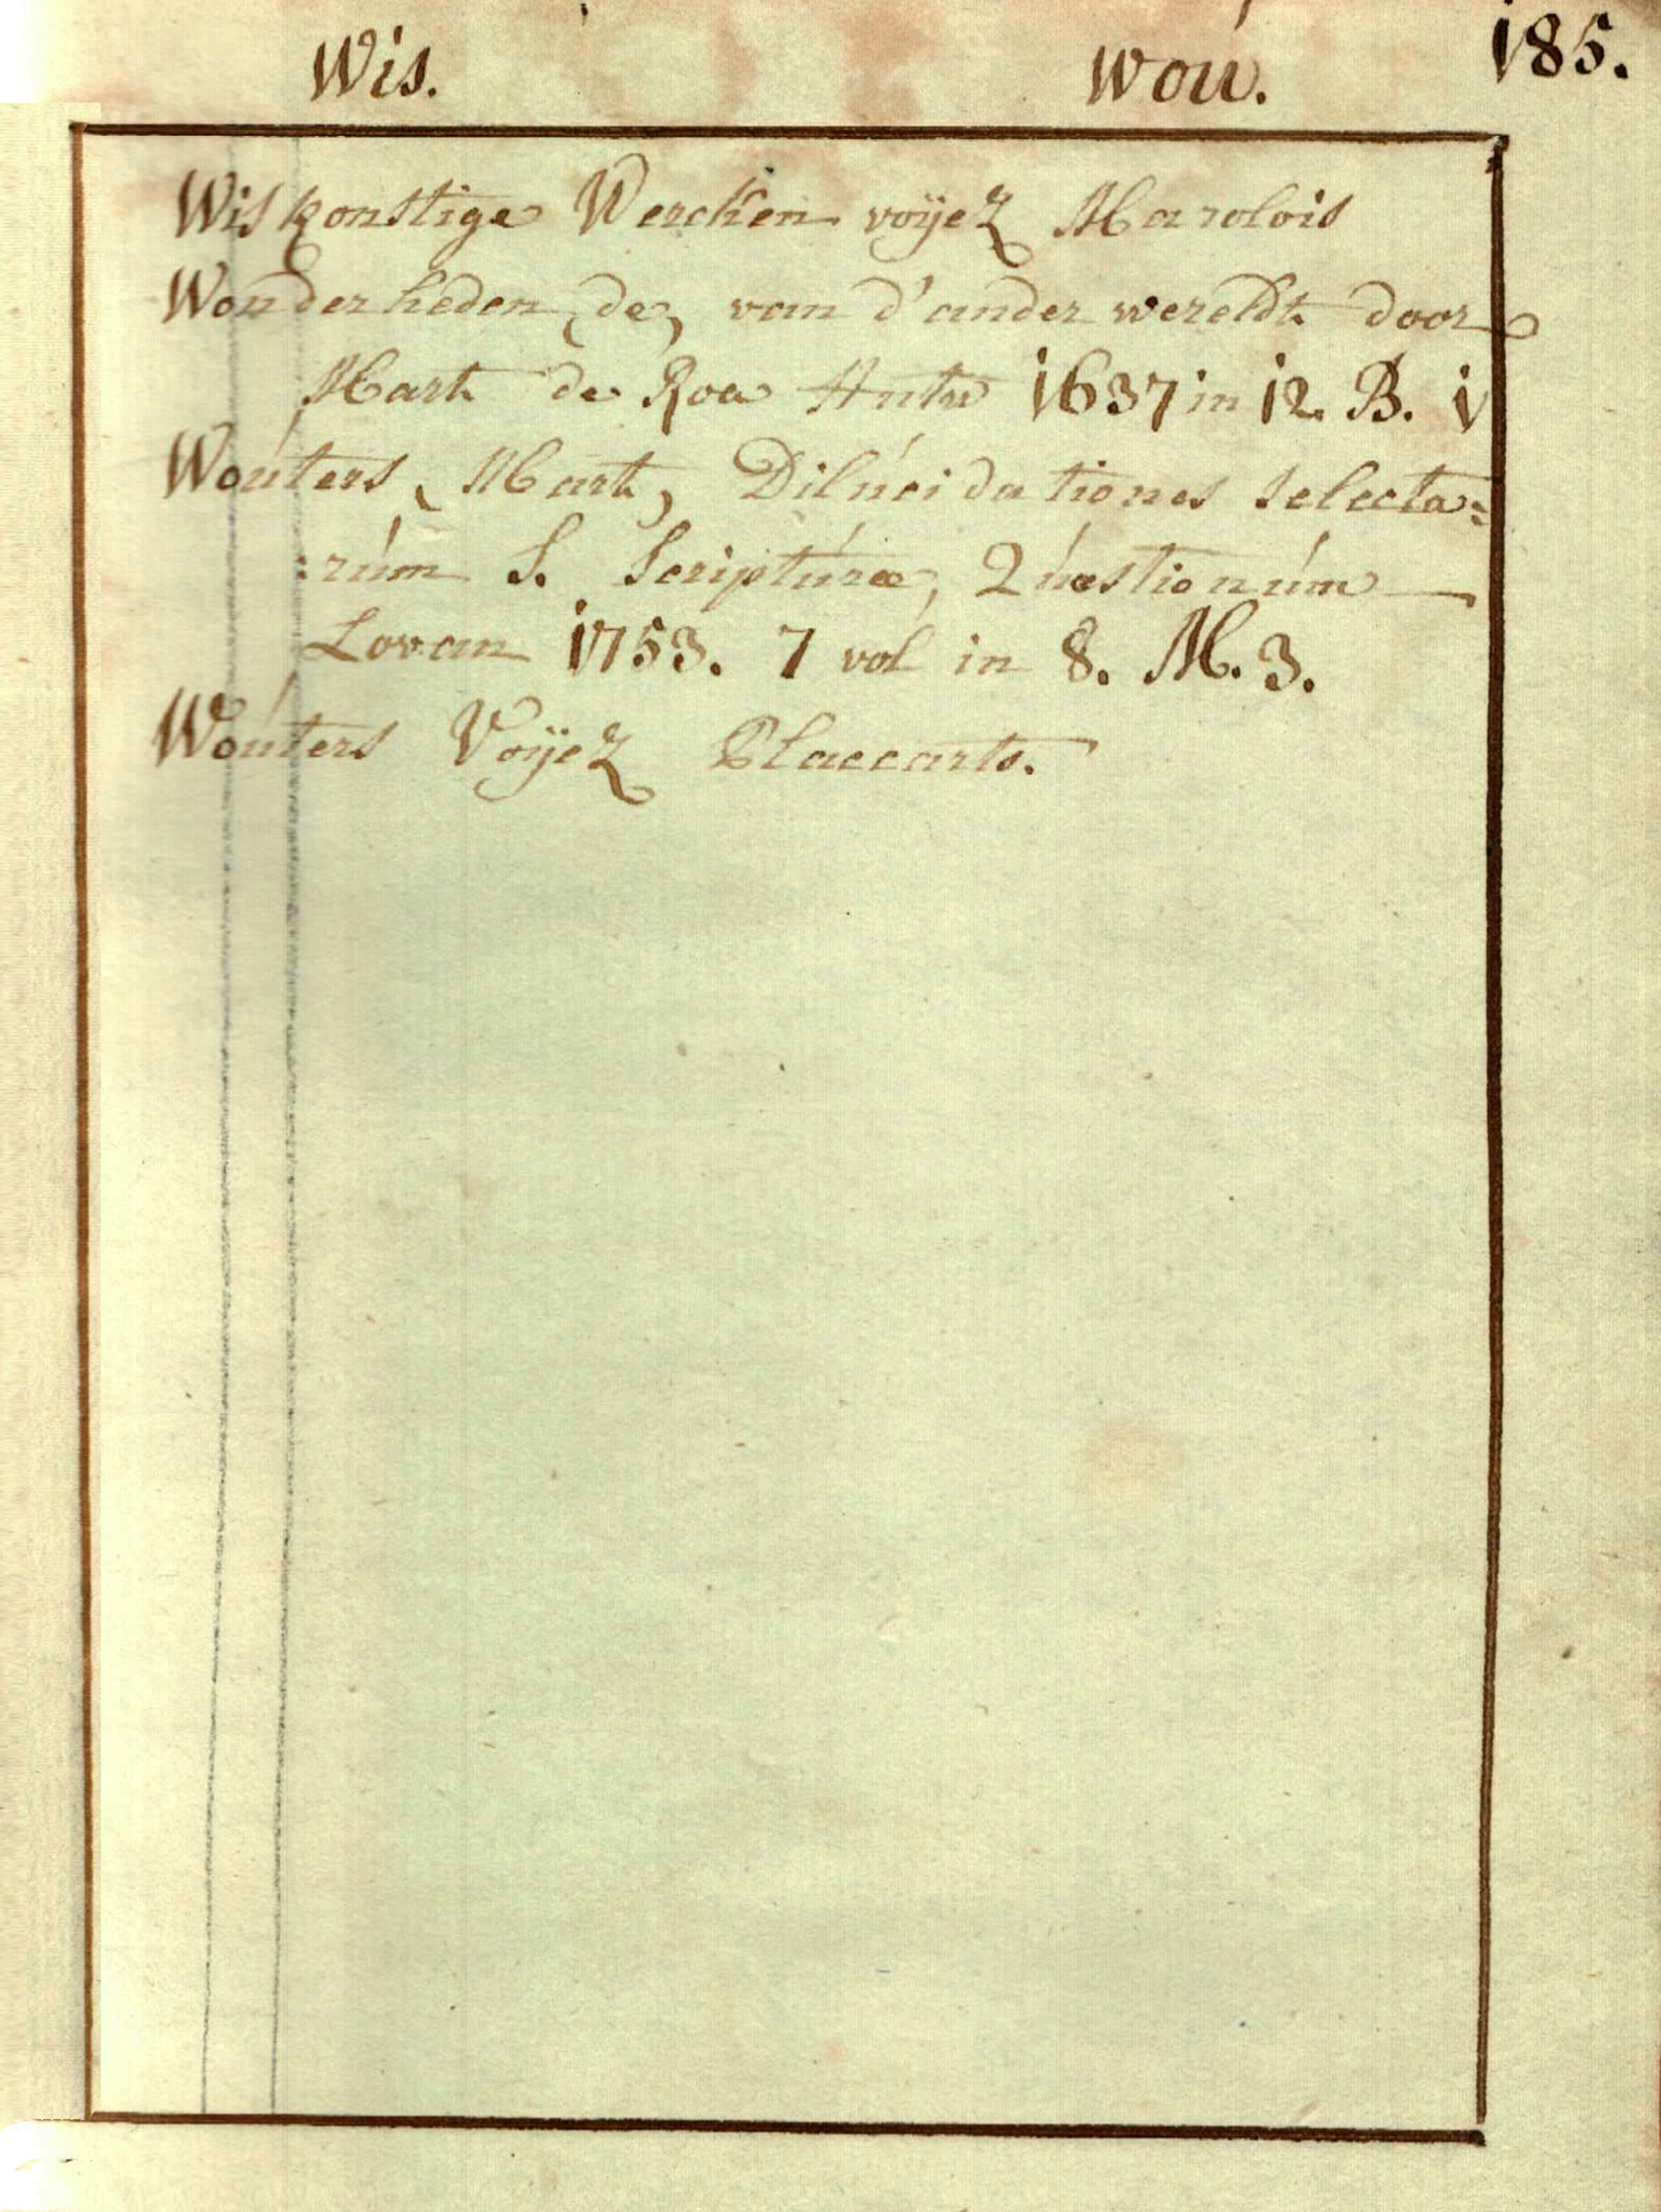 Wis. Woú. 185.
Wiskonstige Wercken voÿez Marolois
Wonderheden, de, van d'ander wereldt door
Mart de Roa Antw 1637 in 12. B. 1
Woúters, Mart, Dilúcidationes selecta=
:rúm S. Scriptúræ, Qúæstionúm
Lovan 1753. 7 vol in 8. M. 3.
Woúters Voÿez Placcarts.